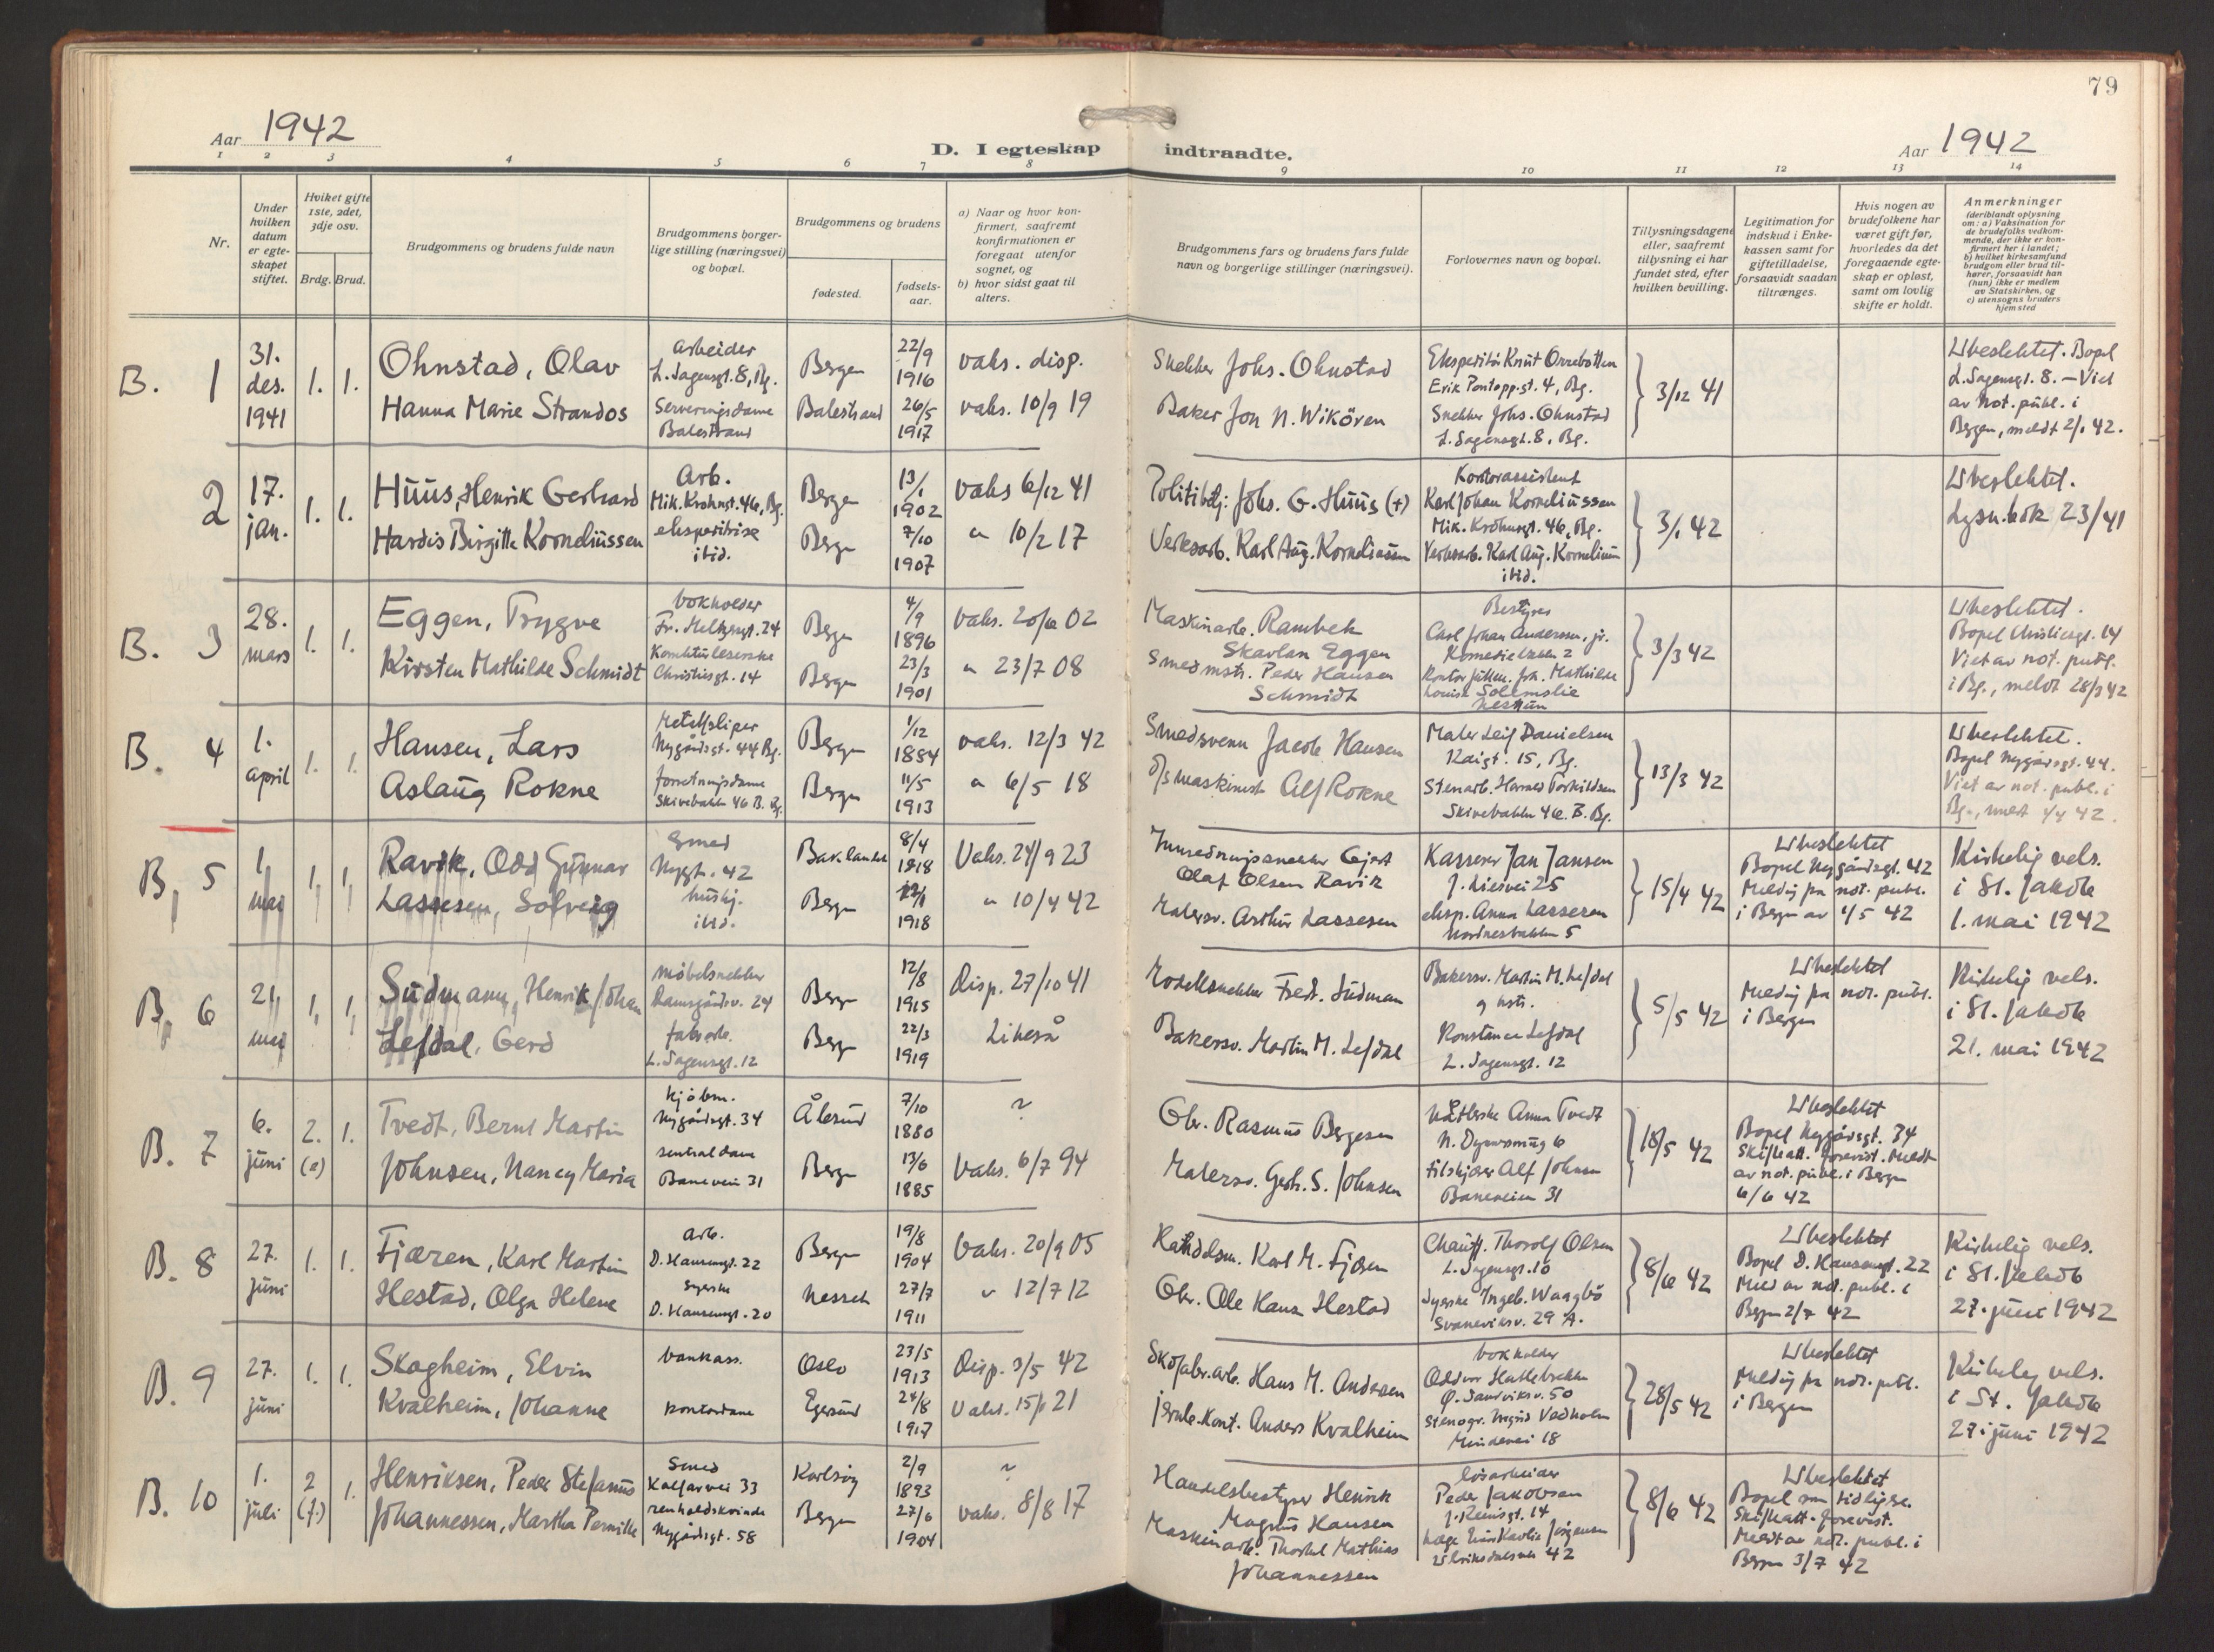 79
Aar 1942
D. I egteskap indtraadte.
Aar 1942
1 2 3 4 5 6 7 8 9 10 11 12 13 14
Nr.
Under hvilken datum er egteskapet stiftet.
Hviket gifte 1ste, 2det, 3dje osv.
Brdg. Brud.
Brudgommens og brudens fulde navn
Brudgommens borgerlige stilling (næringsvei) og bopæl.
Brudgommens og brudens
fødested.
fødselsaar.
a) Naar og hvor konfirmert, saafremt konfirmationen er foregaat utenfor sognet, og
b) hvor sidst gaat til alters.
Brudgommens fars og brudens fars fulde navn og borgerlige stillinger (næringsvei).
Forlovernes navn og bopæl.
Tillysningsdagene eller, saafremt tillysning ei har fundet sted, efter hvilken bevilling.
Legitimation for indskud i Enkekassen samt for giftetilladelse, forsaavidt saadan tiltrænges.
Hvis nogen av brudefolkene har været gift før, hvorledes da det foregaaende egteskap er opløst, samt om lovlig skifte er holdt.
Anmerkninger
(deriblandt oplysning om: a) Vaksination for de brudefolks vedkommende, der ikke er konfirmert her i landet; b) hvilket kirkesamfund brudgom eller brud tilhører, forsaavidt han (hun) ikke er medlem av Statskirken, og c) utensogns bruders hjemsted
B. 1
31. des. 1941
1. 1.
Ohnstad, Olav
Hanna Marie Strandos
arbeider
L. Sagensgt. 8, Bg.
Serveringsdame
Balestrand
Bergen
Balestrand
22/9 1916
26/5 1917
vaks. disp.
vaks. 10/9 19
Snekker Johs. Ohnstad
Baker Jon N. Wikören
Ekspeditör Knut Orrebotten
Erik Pontopp.gt. 4, Bg.
Snekker Johs. Ohnstad
L. Sagensgt. 8, Bg.
3/12 41
Ubeslektet. Bopel
L. Sagensgt. 8. – Viet
av not. publ. i
Bergen, meldt 2/1 42.
2
17. jan.
1. 1.
Huus, Henrik Gerhard
Hardis Birgitte Korneliussen
Arb.
Mik. Krohnsgt. 46, Bg.
ekspeditrise
ibid.
Bergen
Bergen
13/1 1902
7/10 1907
vaks 6/12 41
" 10/2 17
Politibetj: Johs. G. Huus (+)
Verksarb. Karl Aug. Korneliussen
Kontorassistent
Karl Johan Korneliussen
Mik. Krohnsgt. 46, Bg.
Verksarb. Karl Aug. Korneliussen
ibid.
3/1 42
Ubeslektet.
Lysn.bok 23/41
B. 3
28. mars
1. 1.
Eggen, Trygve
Kirsten Mathilde Schmidt
bokholder
Fr. Meltzersgt. 24
Christiesgt. 14
Bergen
Bergen
4/9 1896
23/3 1901
vaks. 20/6 02
" 23/7 08
Maskinarb. Rambek
Skavlan Eggen
Smedmstr. Peder Hansen
Schmidt
Bestyrer
Carl Johan Andersen, jr.
Mathilde
Nesttun
3/3 42
Ubeslektet.
Bopel Christiesgt. 14
Viet av not. publ.
i Bg., meldt 28/3 42
B. 4
1. april
1. 1.
Hansen, Lars
Aslaug Rokne
Metallsliper
Nygårdsgt. 44 Bg.
forretningsdame
Skivebakken 46 B. Bg.
Bergen
Bergen
1/12 1884
11/5 1913
vaks. 12/3 42
" 6/5 18
Smedsvenn Jacob Hansen
D/s maskinist Alf Rokne
Maler Leif Danielsen
Kaigt. 15, Bg.
Stenarb. Hannes Torkildsen
Skivebakken 46. B. Bg.
13/3 42
Ubeslektet.
Bopel Nygårdsgt. 44.
Viet av not. publ. i
Bg., meldt 1/4 42.
B. 5
1. mai
1. 1.
Ravik, Odd Gunnar
Lassesen, Solveig
Smed
Nygt. 42
hushj.
ibid.
Baklandet
Bergen
8/4 1918
1918
Vaks. 24/9 23
" 10/4 42
Innredningssnekker Gjert
Olaf Olsen Ravik
Malersv. Arthur Lassesen
Kasserer Jan Jansen
J. Liesvei 25
eksp. Anna Lassesen
Nordnesbakken 5
15/4 42
Ubeslektet
Bopel Nygårdsgt. 42
Melding fra not. publ.
i Bergen av 1/5 42
Kirkelig vels.
i St. Jakob
1. mai 1942
B. 6
21. mai
1. 1.
Sudmann, Henrik Johan
Lefdal, Gerd
møbelsnekker
Damsgårdsv. 24
fabrarb.
L. Sagensgt. 12
Bergen
Bergen
12/8 1915
22/3 1919
Disp. 27/10 41
Likeså
Modellsnekker Fredr. Sudman
Bakersv. Martin M. Lefdal
Bakersv. Martin M. Lefdal
og hstr.
Konstance Lefdal
L. Sagensgt. 12
5/5 42
Ubeslektet
Melding fra not. publ.
i Bergen
Kirkelig vels.
i St. Jakob
21. mai 1942
B. 7
6. juni
2. (a) 1.
Tvedt, Bernt Martin
Johnsen, Nancy Maria
kjöbm.
Nygårdsgt. 34
sentraldame
Banevei 31
Ålesund
Bergen
7/10 1880
13/6 1885
~
Vaks. 6/7 94
Gbr. Rasmus Bergesen
Malersv. Gerh. S. Johnsen
Anna Tvedt
Alf Johnsen
Baneveien 31
18/5 42
Ubeslektet
Bopel Nygårdsgt. 34
Skif.att. forevist. Meldt
av not. publ. i Bergen
6/6 42
B. 8
27. juni
1. 1.
Fjæren, Karl Martin
Hestad, Olga Helene
arb.
D. Hansensgt. 22
syerske
D. Hansensgt. 20
Bergen
Nesset
19/8 1904
27/7 1911
Vaks. 20/9 05
" 12/7 12
Karl M. Fjæren
Gbr. Ole Hans Hestad
Chauff. Thorolf Olsen
L. Sagensgt. 10
Syerske Ingeb. Waagbö
Svaneviksv. 29 A.
8/6 42
Ubeslektet
Bopel D. Hansensgt. 22
Meld av not. publ. i
Bergen 2/7 42
Kirkelig vels.
i St. Jakob
27. juni 1942
B. 9
27. juni
1. 1.
Skogheim, Elvin
Kvalheim, Johanne
bankass.
kontordame
Oslo
Egersund
23/5 1913
24/8 1917
Disp. 3/5 42
Vaks. 15/1 21
Skofabr.arb. Hans M. Andersen
jernb.kont. Anders Kvalheim
bokholder
Oddvar Hattlebrekke
Ø. Sandviksv. 50
Stenogr. Ingrid Vedholm
Mindevei 18
28/5 42
Ubeslektet
Melding fra not. publ.
i Bergen
Kirkelig vels.
i St. Jakob
27. juni 1942
B. 10
1. juli
2 (f.) 1.
Henriksen, Peder Stefanus
Johannessen, Martha Pernille
Smed
Kalfarvei 33
renholdskvinde
Nygårdsgt. 58
Karlsöy
Bergen
2/9 1893
27/6 1904
~
vaks. 8/8 17
Handelsbestyrer Henrik
Magnus Hansen
Maskinarb. Thorkel Mathias
Johannessen
lösarbeider
Peder Jakobsen
Ulriksdalsvei 42
8/6 42
Ubeslektet
Bopel som tidligere.
Skif.att. forevist.
Meldt av not. publ. i
Bergen 3/7 42